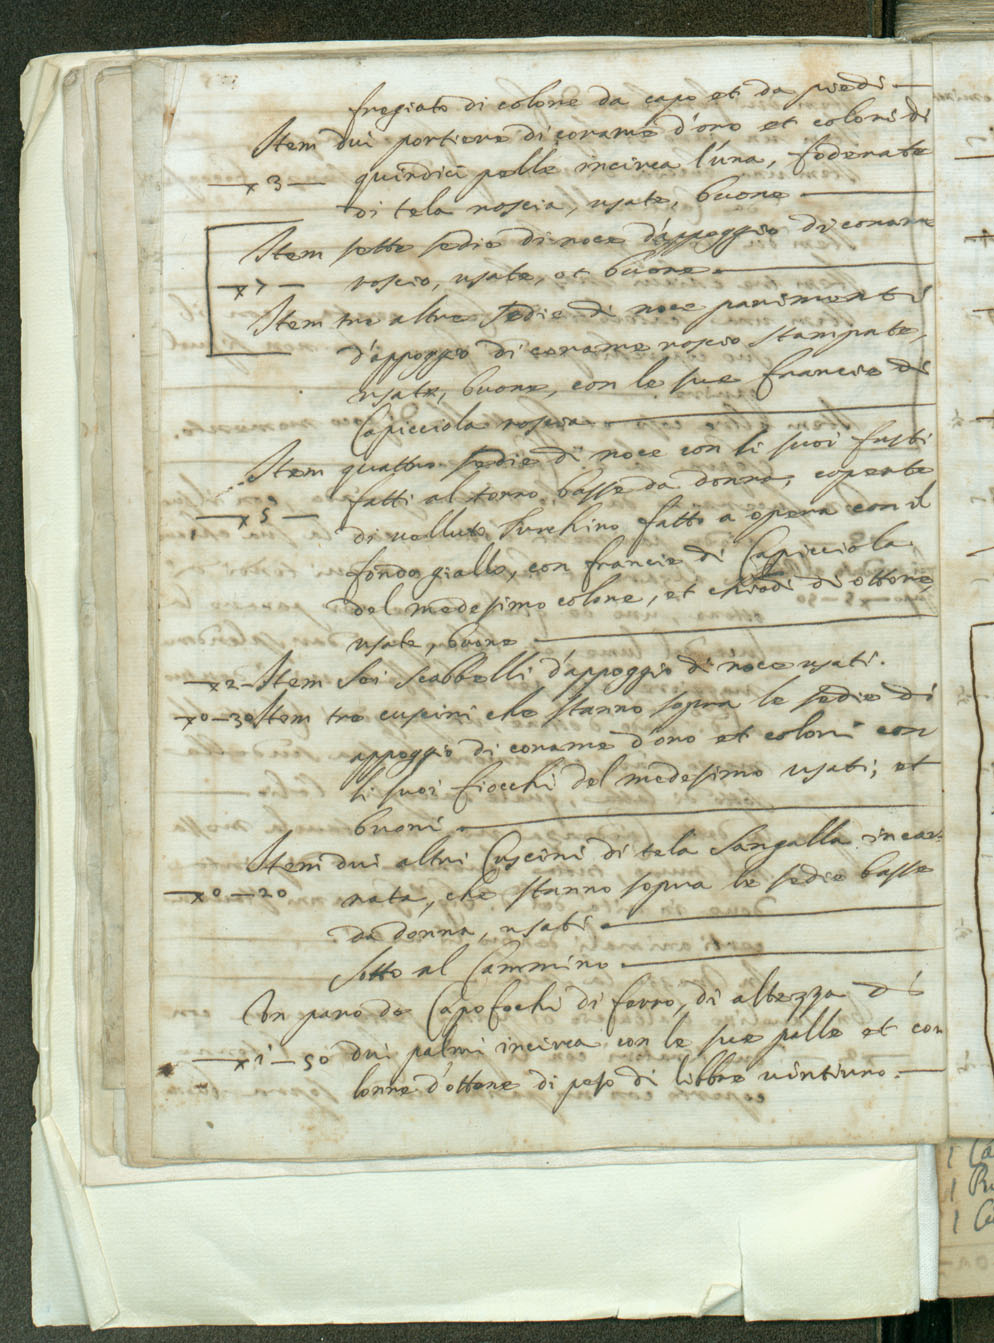 fregiato di colore da capo et da piedi —
Item dui portiere di corame d'oro et colori di
— x 3 — quindici pelle incirca l'una, foderate
di tela roscia, usate, buone —
Item sette sedie di noce d'appoggio di corame
— x 7 — roscio, usate, et buone —
Item tre altre sedie di noce parimenti
d'appoggio di corame roscio stampate,
usate, buone, con le sue francie di
Capicciola roscia —
Item quattro sedie di noce con li suoi fusti
fatti al torno, basse da donna, coperte
— x 5 — di velluto turchino fatto a opera con il
fondo giallo, con francie di Capicciola
del medesimo colore, et chiodi di ottone,
usate, buone —
— x 2 — Item sei scabbelli d'appoggio di noce usati.
x 0 — 30 Item tre cuscini che stanno sopra le sedie di
appoggio di corame d'oro et colori con
li suoi fiocchi del medesimo usati, et
buoni —
Item dui altri Cuscini di tela Sangalla incar-
— x 0 — 20 nata, che stanno sopra le sedie basse
da donna, usati —
Sotto al Cammino —
Un paro de Capofochi di ferro, di altezza di
— x 1 — 50 dui palmi incirca con le sue palle et co-
lonne d'ottone di peso di libbre vintiuno. —